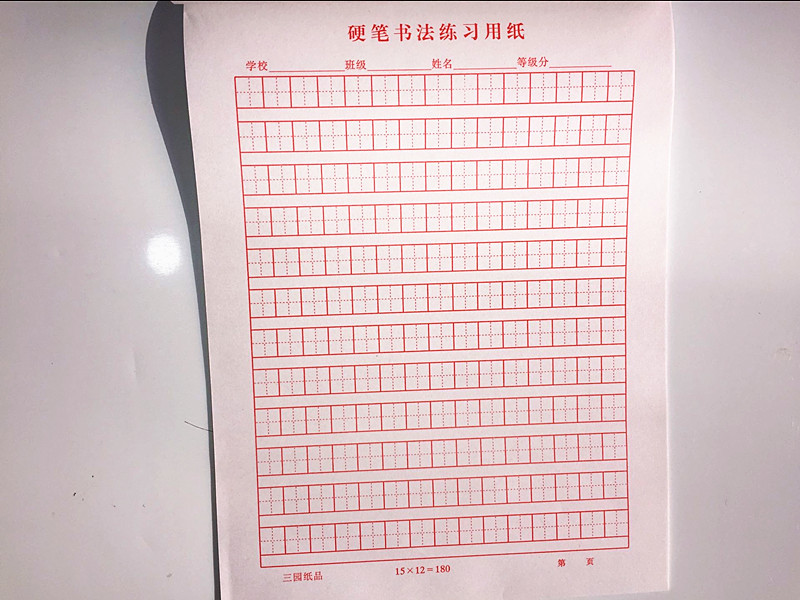 硬笔书法练习用纸
学校 班级 姓名 等级分
三园纸品 15×12=180 第 页